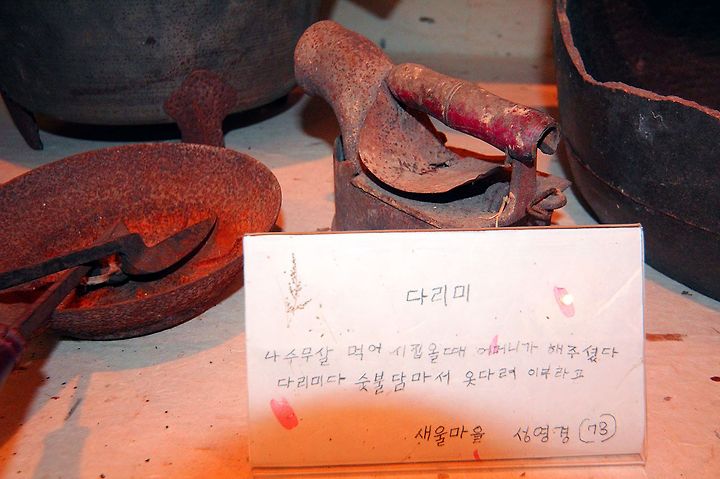 다리미
나 수무살 먹어 시집올때 어머니가 해주셨다
다리미다 숯불담마서 옷다려 이부라고
새울마을 성영경 (73)